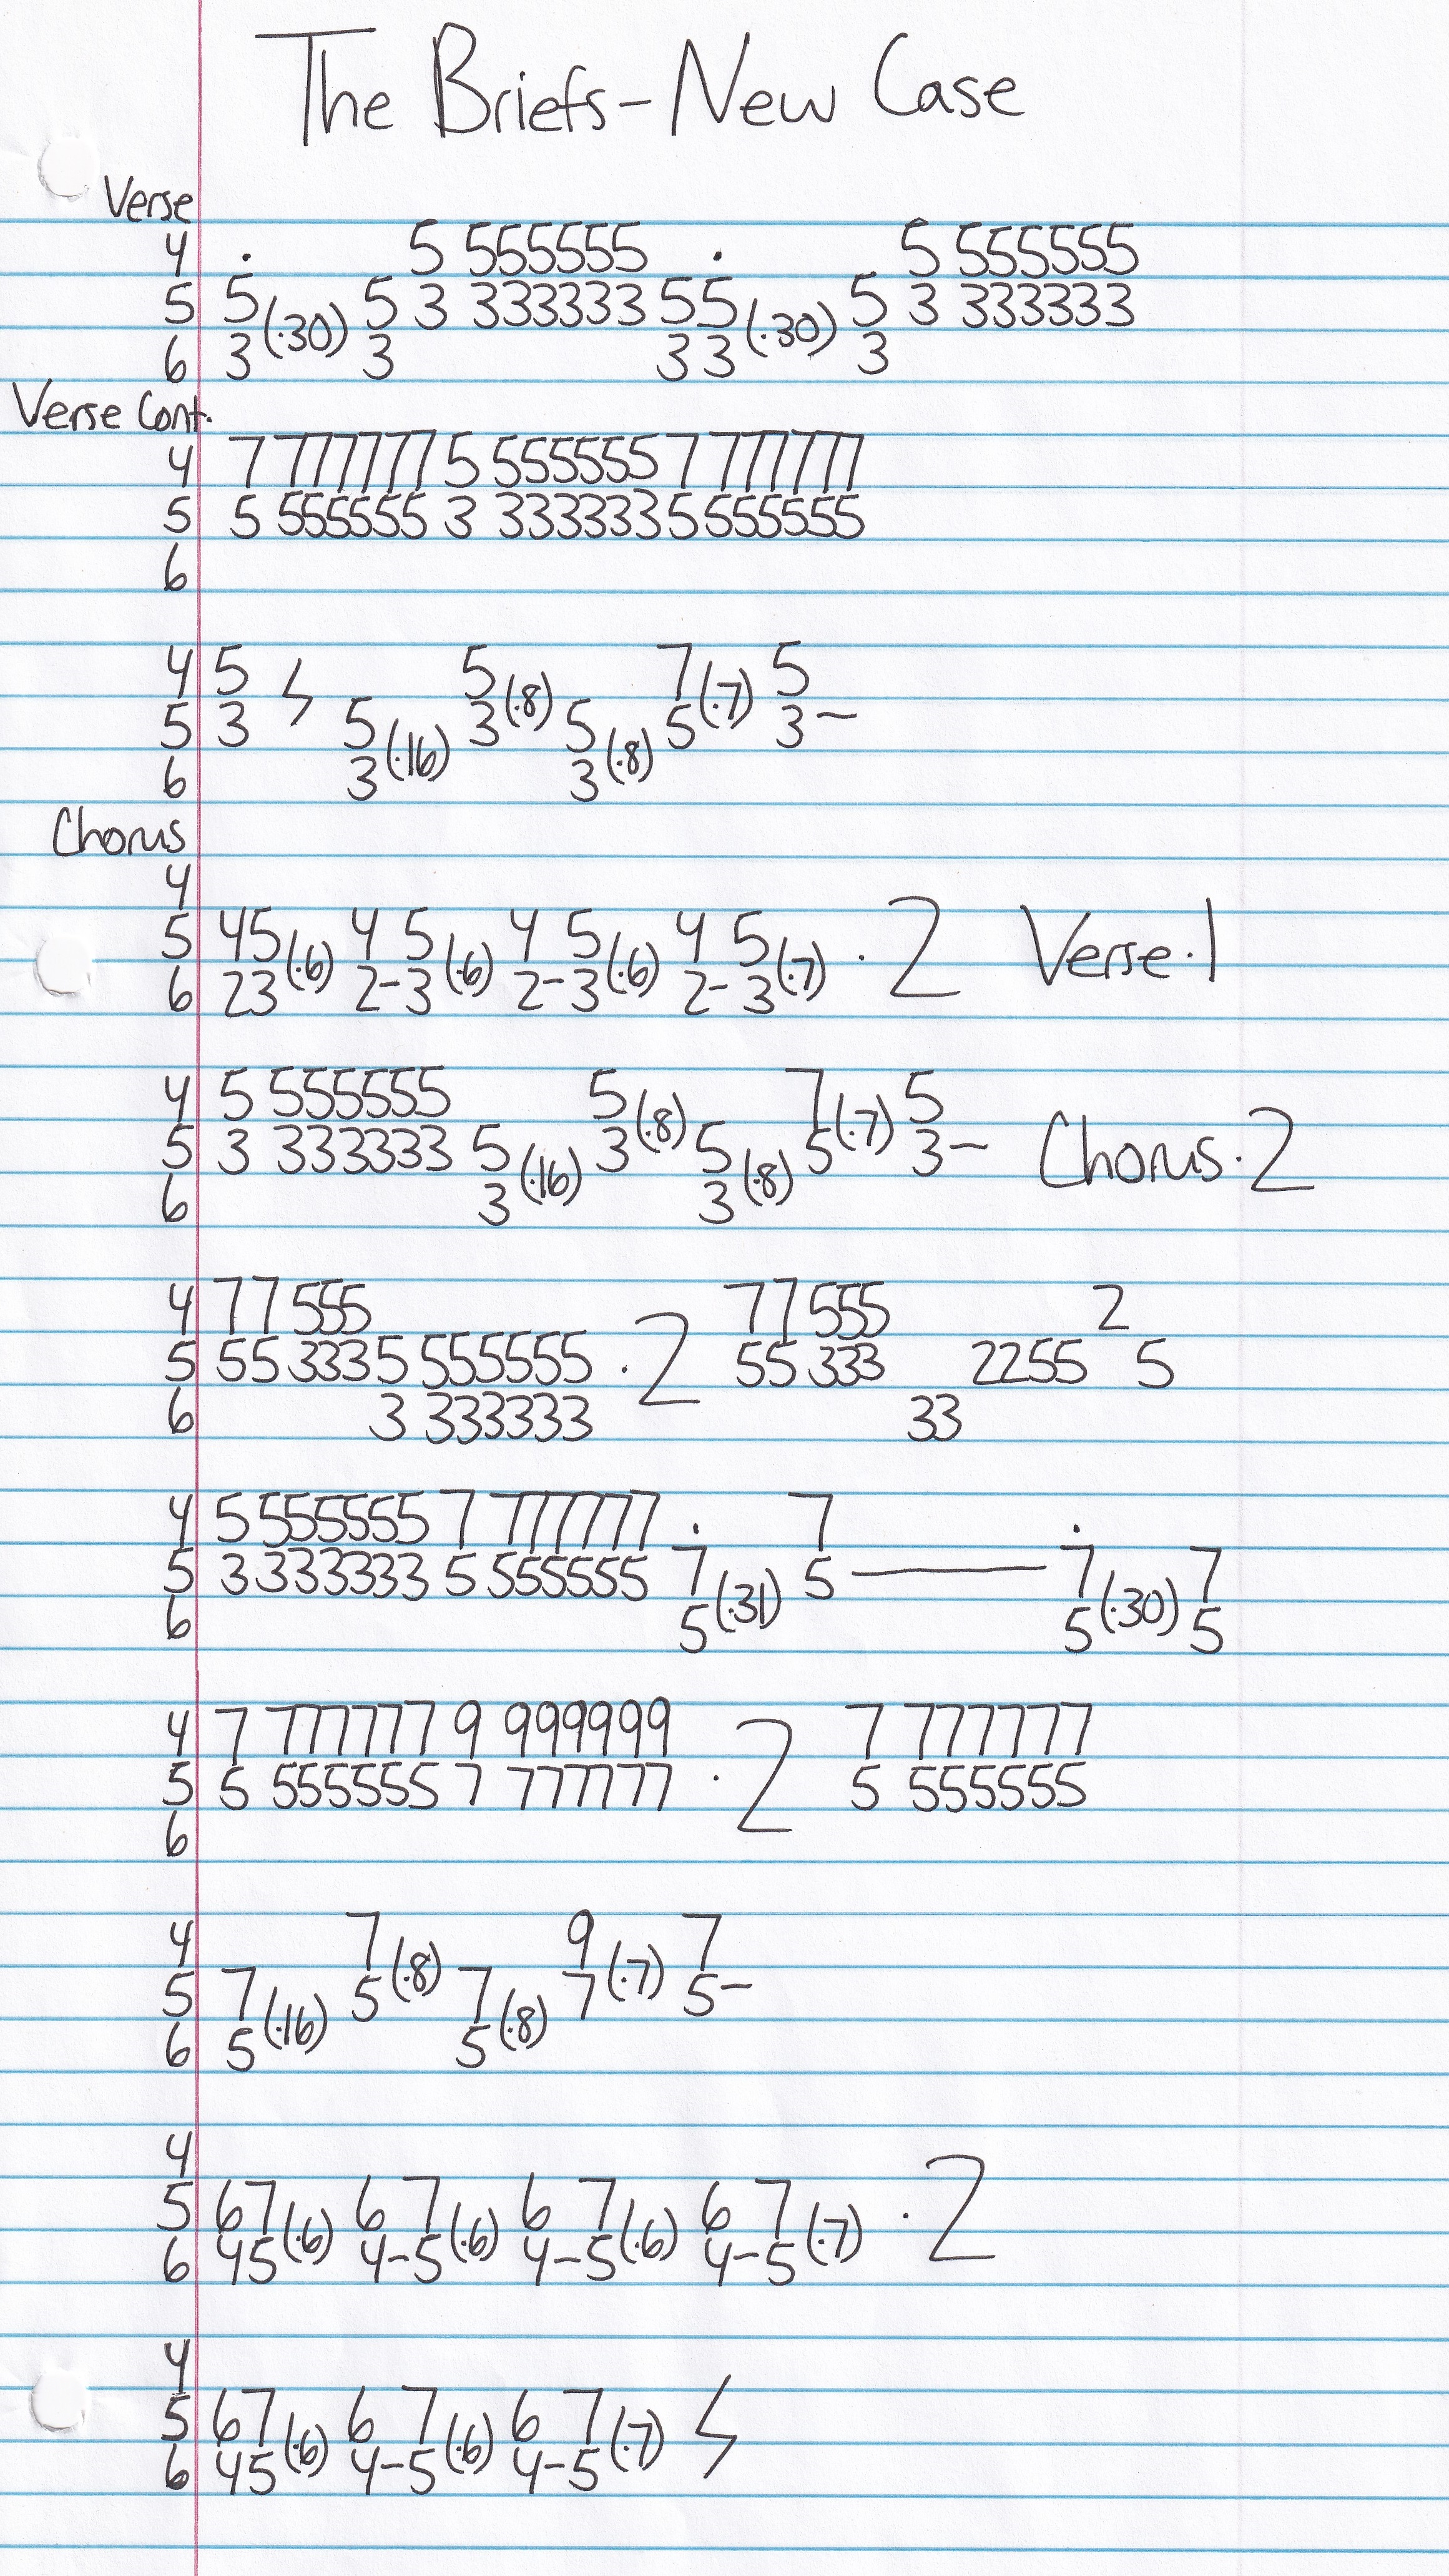 The Briefs - New Case
Verse
4 . 5 555555 . 5 555555
5 5 (·30) 5 3 333333 55 (·30) 5 3 333333
6 3 3 33 3
Verse Cont.
4 7 777777 5 555555 7 777777
5 5 555555 3 333333 5 555555
6
4 5 5 (·8) 7 (·7) 5
5 3 5 (·16) 3 5 (·8) 5 3-
6 3 3
Chorus
4
5 45 (·6) 4 5 (·6) 4 5 (·6) 4 5 (·7) · 2 Verse · 1
6 23 2-3 2-3 2-3
4 5 555555 5 (·8) 7 (·7) 5
5 3 333333 5 (·16) 3 5 (·8) 5 3- Chorus · 2
6 3 3
4 77 555 77 555 2
5 55 333 5 555555 · 2 55 333 2255 5
6 3 333333 33
4 5 555555 7 777777 . 7 .
5 3 333333 5 555555 7 (·31) 5 — 7 (·30) 7
6 5 5 5
4 7 777777 9 999999 7 777777
5 5 555555 7 777777 · 2 5 555555
6
4 7 (·8) 9 (·7) 7
5 7 (·16) 5 7 (·8) 7 5-
6 5 5
4
5 67 (·6) 6 7 (·6) 6 7 (·6) 6 7 (·7) · 2
6 45 4-5 4-5 4-5
4
5 67 (·6) 6 7 (·6) 6 7 (·7)
6 45 4-5 4-5